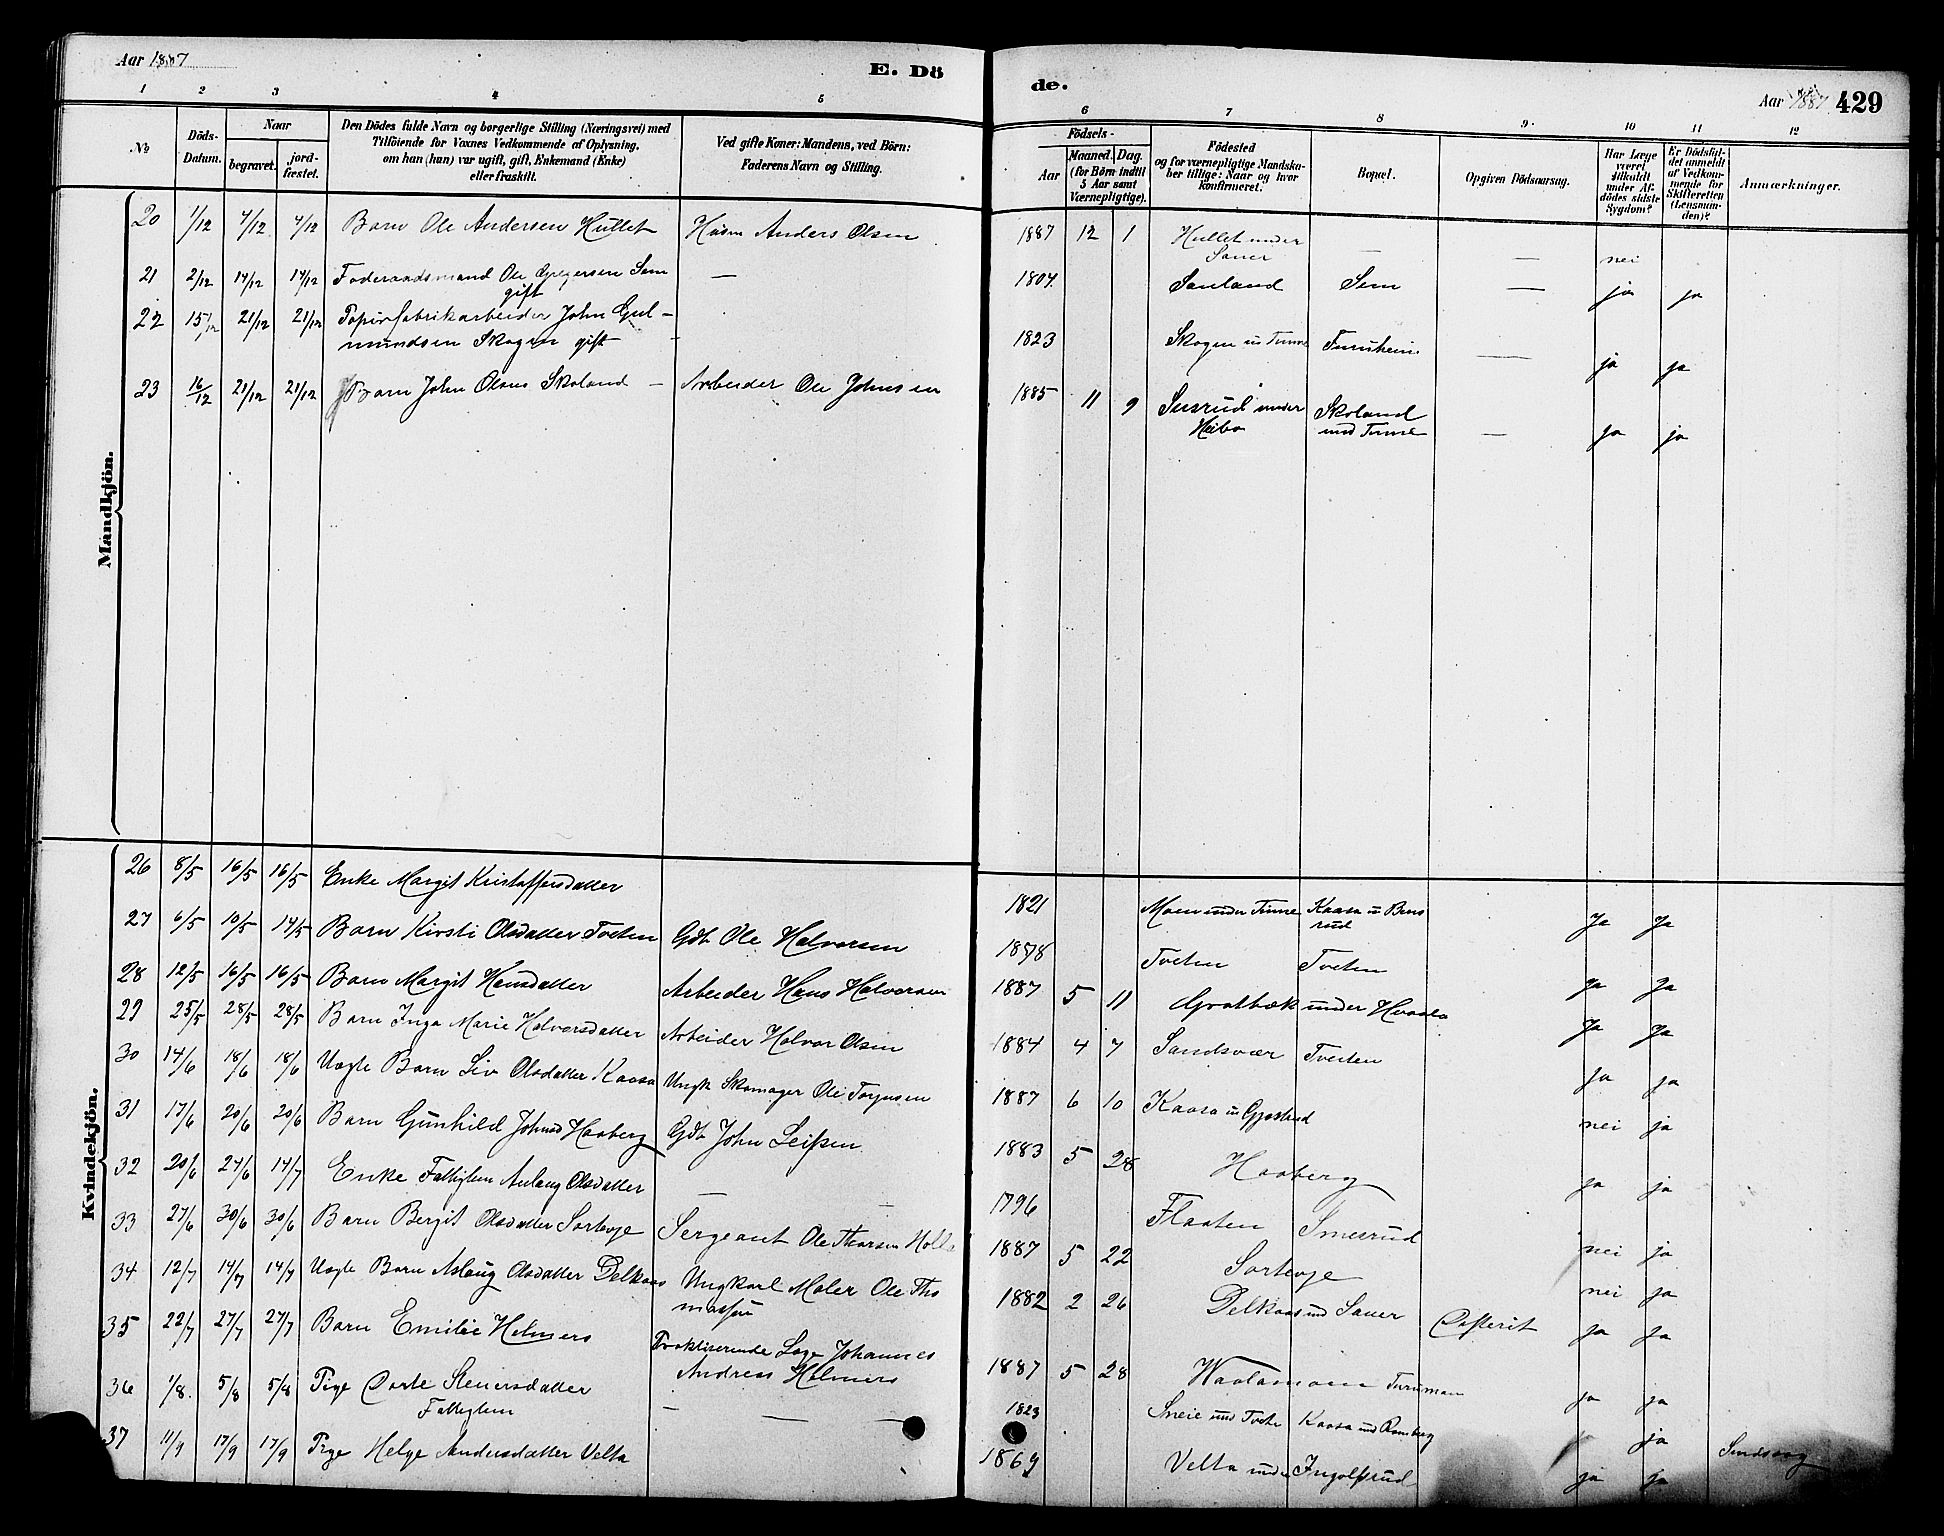 Aar 1887
E. Dö
de.
Aar 1887 429
1 2 3 4 5 6 7 8 9 10 11 12
No
Döds-Datum.
Naar
begravet.
jord-fæstet.
Den Dödes fulde Navn og borgerlige Stilling (Næringsvei) med
Tilföiende for Voxnes Vedkommende af Oplysning,
om han (hun) var ugift, gift, Enkemand (Enke)
eller fraskilt.
Ved gifte Koner: Mandens, ved Börn:
Faderens Navn og Stilling.
Födsels-
Aar
Maaned. Dag.
(for Börn indtil
5 Aar samt
Værnepligtige).
Födested
og for værnepligtige Mandska-
ber tillige: Naar og hvor
konfirmeret.
Bopæl.
Opgiven Dödsaarsag.
Har Læge
været
tilkaldt
under Af-
dödes sidste
Sygdom?
Er Dödsfal-
det anmeldt
af Vedkom-
mende for
Skifteretten
(Lensman-
den)?
Anmærkninger.
Mandkjön.
20 1/12 7/12 7/12 Barn Ole Andersen Hullet Husm Anders Olsen 1887 12 1 Hullet under — — nei
Sauer
21 2/12 14/12 14/12 Foderaadsmand Ole Gregersen Sem — 1804 Sauland Sem — ja ja
gift
22 15/12 21/12 21/12 Papirfabrikarbeider John Gul- 1823 Skogen u Tinne Furuheim — ja ja
mundsen Skogen gift —
23 16/12 21/12 21/12 Barn John Olsens Skoland — Arbeider Ole Johnsen 1885 11 9 Susrud under Skoland — ja ja
Heibø und Tinne
Kvindekjön.
26 8/5 16/5 16/5 Enke Margit Kristoffersdatter 1821 Moen under Tinne Kaasa u Bens Ja Ja
rud
27 6/5 10/5 14/5 Barn Kirsti Olsdatter Tveten Gdb Ole Halvorsen 1878 Tveten Tveten Ja Ja
28 12/5 16/5 16/5 Barn Margit Hansdatter Arbeider Hans Halvorsen 1887 5 11 Grotbæk under Ja Ja
29 25/5 28/5 28/5 Barn Inga Marie Halvorsdatter Arbeider Halvor Olsen 1884 4 7 Sandsvær Tveiten ja ja
30 14/6 18/6 18/6 Uægte Barn Liv Olsdatter Kaasa Ungk Skomager Ole Torjusen 1887 6 10 Kaasa u nei ja
31 17/6 20/6 20/6 Barn Gunhild Johnsd Haaberg Gdb John Leifsen 1883 5 28 Haaberg ja ja
32 20/6 24/6 14/7 Enke Fattiglem Aslaug Olsdatter — 1796 Flaaten Smesrud nei ja
33 27/6 30/6 30/6 Barn Bergit Olsdatter Sortevje Sergeant Ole Thorsen Holla 1887 5 22 Sortevje nei ja
34 12/7 14/7 14/7 Uægte Barn Aslaug Olsdatter Delkaas Ungkarl Maler Ole Tho 1882 2 26 Delkaas und Sauer ja ja
massen
35 22/7 27/7 27/7 Barn Emilie Holmers Praktiserende Læge Johannes 1887 5 28 ja ja
Andreas Holmers
36 1/8 5/8 5/8 Pige Dorte Steinersdatter — 1823 Sneie und Tvete Kaasa und Ramberg ja
Fattiglem
37 11/9 17/9 17/9 Pige Helge Andersdatter Velta 1869 Velta under Ingolfsrud ja ja